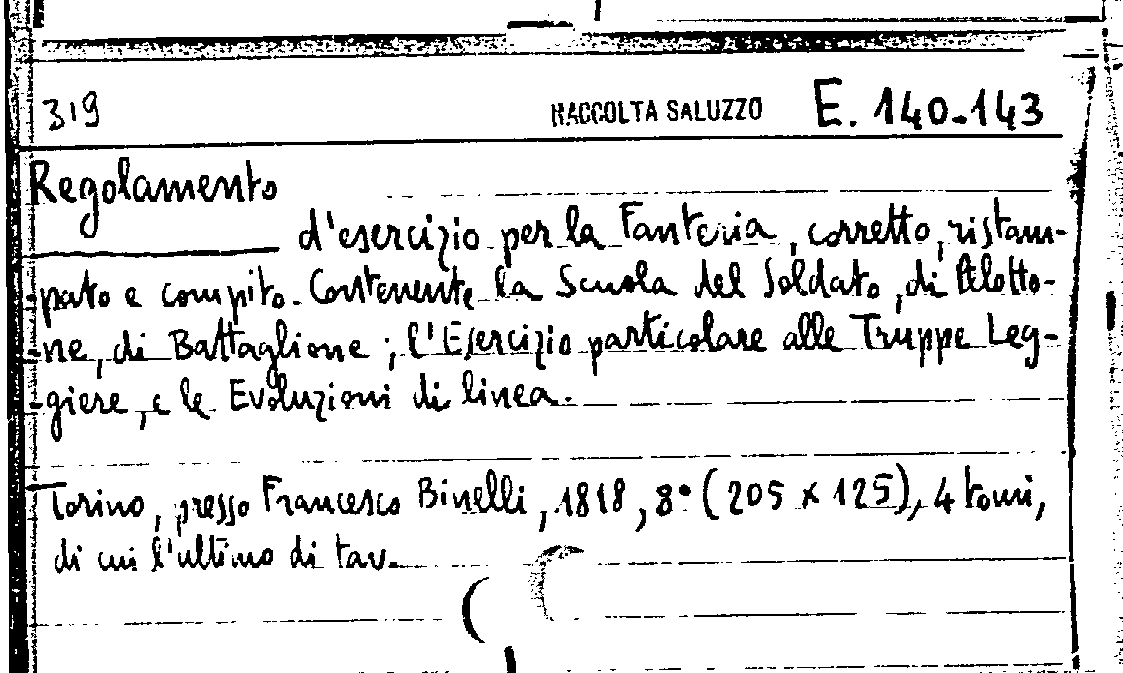 319 RACCOLTA SALUZZO E. 140-143
Regolamento
d'esercizio per la Fanteria, corretto, ristam-
pato e compito. Contenente la Scuola del Soldato, di Plotto-
ne, di Battaglione; l'Esercizio particolare alle Truppe Leg-
giere, e le Evoluzioni di linea.
Torino, presso Francesco Binelli, 1818, 8° (205 x 125), 4 tomi,
di cui l'ultimo di tav.